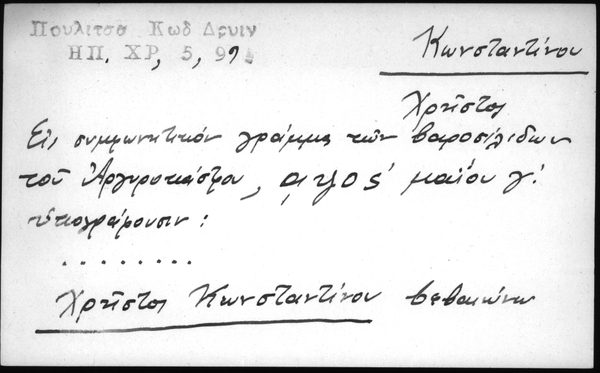 Πουλιτσα Κωδ Δρυιν
ΗΠ. ΧΡ, 5, 99
Κωνσταντίνου
Χρῆστος
Εἰς συμφωνητικόν γράμμα τῶν βαροσιλιδων
τοῦ Ἀργυροκάστρου, αψος' μαΐου γ'.
ὑπογράφουσιν :
. . . . . . . .
Χρῆστος Κωνσταντίνου βεβαιώνω